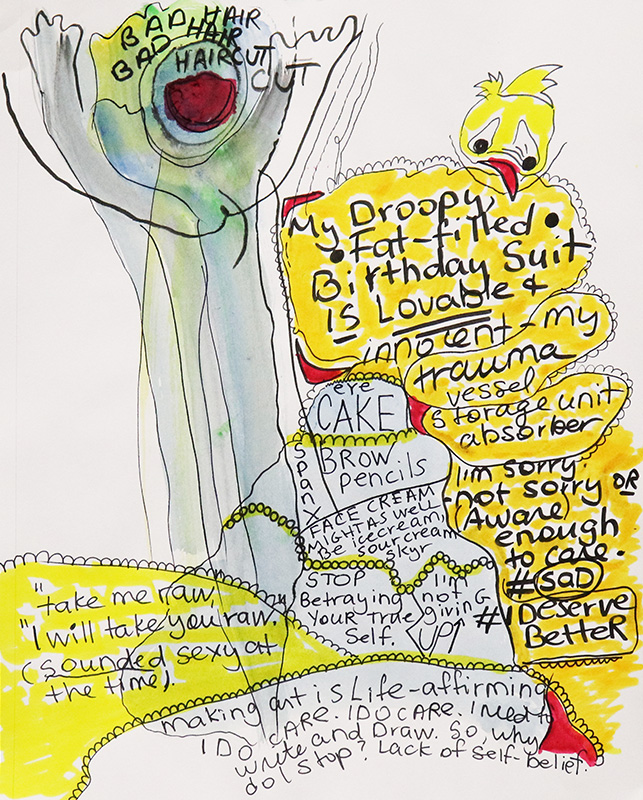 BAD HAIR
BAD HAIR
HAIRCUT
CUT
My Droopy,
Fat-filled
Birthday Suit
IS Lovable &
innocent - my
trauma
vessel
storage unit
absorber
I'm sorry.
not sorry OR
(Aware)
enough
to care.
#SAD
#I DESERVE
BetteR
eye
CAKE
SPANX
BROW
pencils
FACE CREAM
MIGHT AS WELL
Be icecream,
sour cream
skyr
STOP
Betraying
YOUR TRUE
Self.
I'm
not
giving
UP!
"take me raw,
"I will take you raw.
(sounded sexy at
the time).
making art is Life-affirming
I DO CARE. I DO CARE. I Need to
write and Draw. So, why
do I stop? Lack of self-belief.